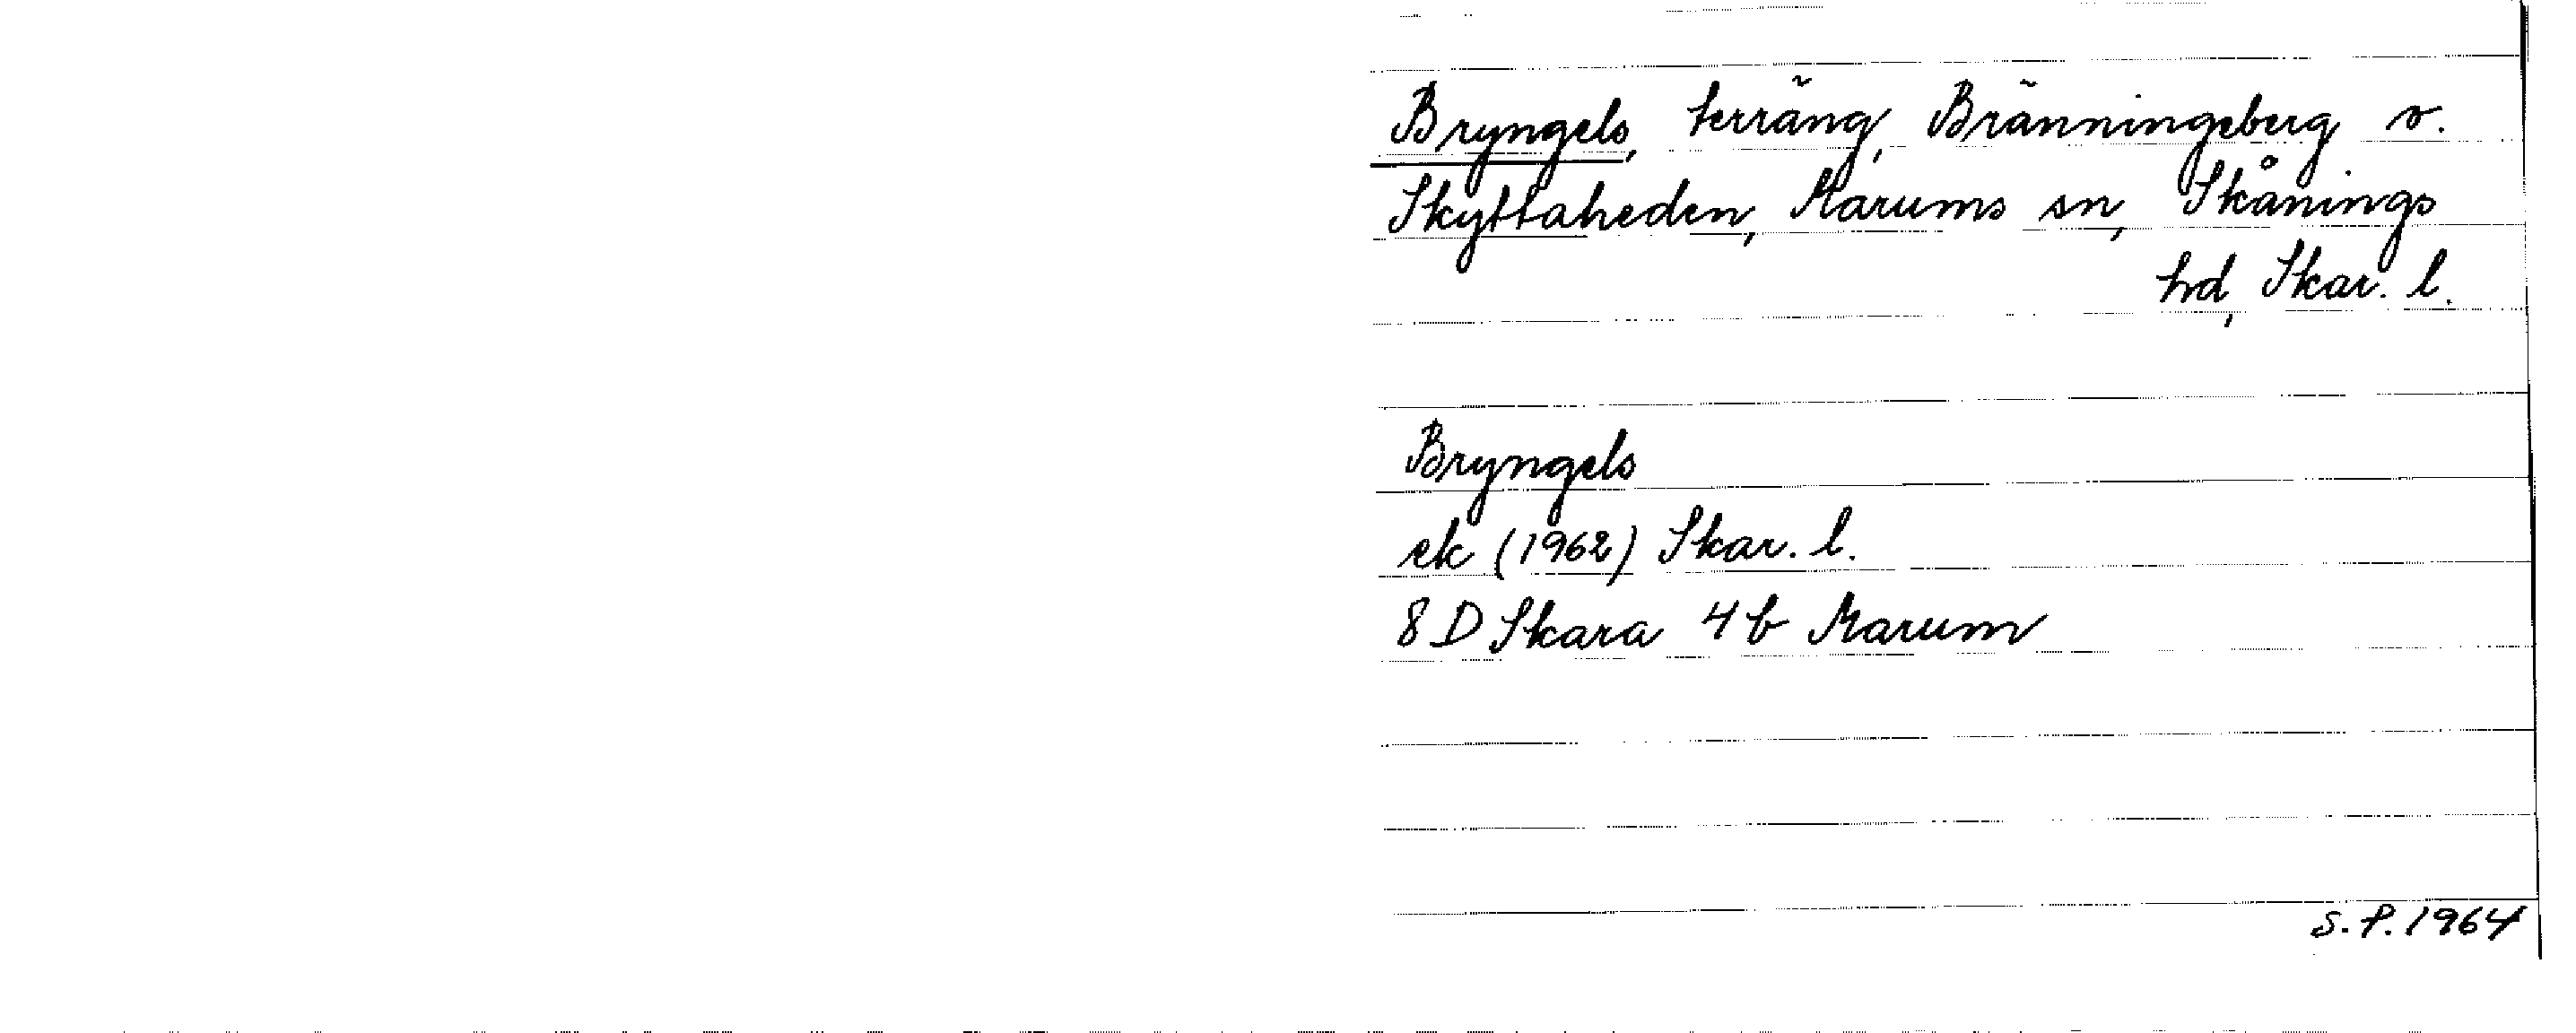 Bryngels, terräng, Bränningeberg s.
Skyttaheden, Marums sn, Skånings
hd, Skar. l.
Bryngels
ek (1962) Skar. l.
8 D Skara 4 b Marum
S.P. 1964